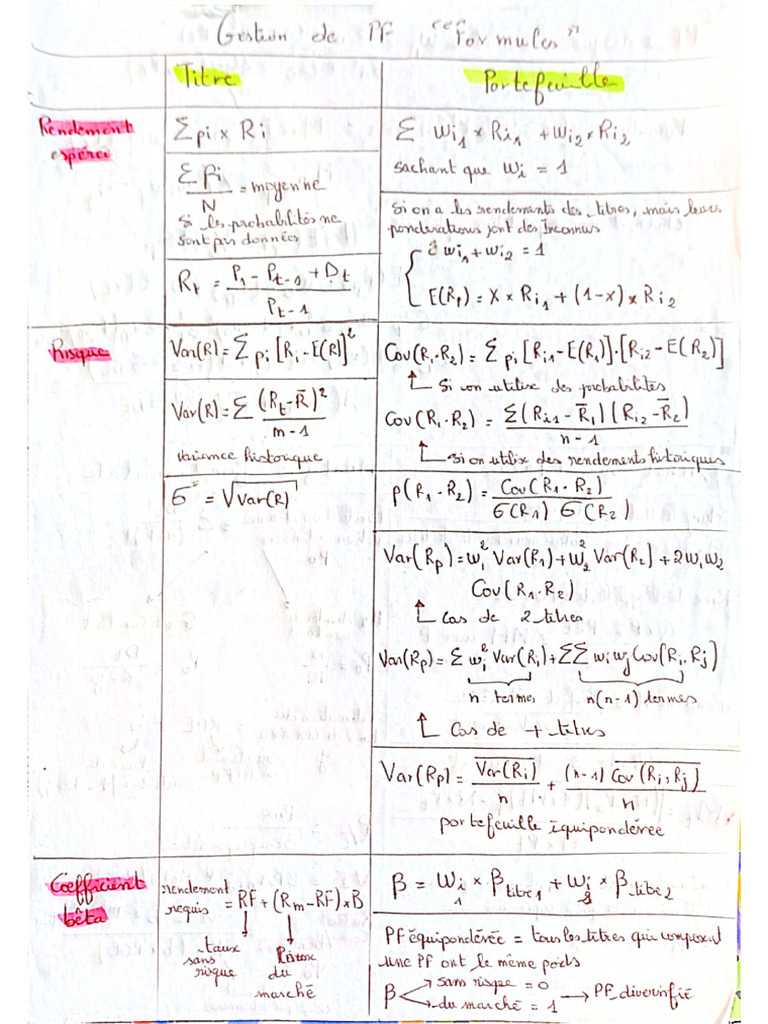 Gestion de PF "Formules"
Titre
Portefeuille
Rendement
espérei
Σ pi × Ri
Σ Pi / N = moyenne
Si les probabilités ne
sont pas données
Rt = (P1 - Pt-1 + Dt) / Pt-1
Σ wi1 × Ri1 + wi2 × Ri2
sachant que wi = 1
Si on a les rendements des titres, mais leurs
ponderations sont des Inconnus
{ wi1 + wi2 = 1
E(Rp) = X × Ri1 + (1-x) × Ri2
Risque
Var(R) = Σ pi [Ri - E(R)]²
Var(R) = Σ (Rt - R̄)² / m-1
variance historique
σ = √Var(R)
Cov(R1·R2) = Σ pi [Ri1 - E(R1)]·[Ri2 - E(R2)]
Si on utilise des probabilités
Cov(R1·R2) = Σ(Ri1 - R̄1)(Ri2 - R̄2) / n-1
Si on utilise des rendements historiques
ρ(R1·R2) = Cov(R1·R2) / σ(R1) σ(R2)
Var(Rp) = w1² Var(R1) + w2² Var(R2) + 2w1w2
Cov(R1·R2)
Cas de 2 titres
Var(Rp) = Σ wi² Var(Ri) + ΣΣ wi wj Cov(Ri, Rj)
n termes n(n-1) termes
Cas de + titres
Var(Rp) = Var(Ri) / n + (n-1) Cov(Ri, Rj) / n
portefeuille équipondérée
Coefficient
bêta
rendement
requis = RF + (Rm - RF) × B
taux
sans
risque
du
marché
β = wi1 × β titre1 + wi2 × β titre2
PF équipondérée = tous les titres qui composent
une PF ont le même poids
β sans risque = 0
du marché = 1 → PF diversifié